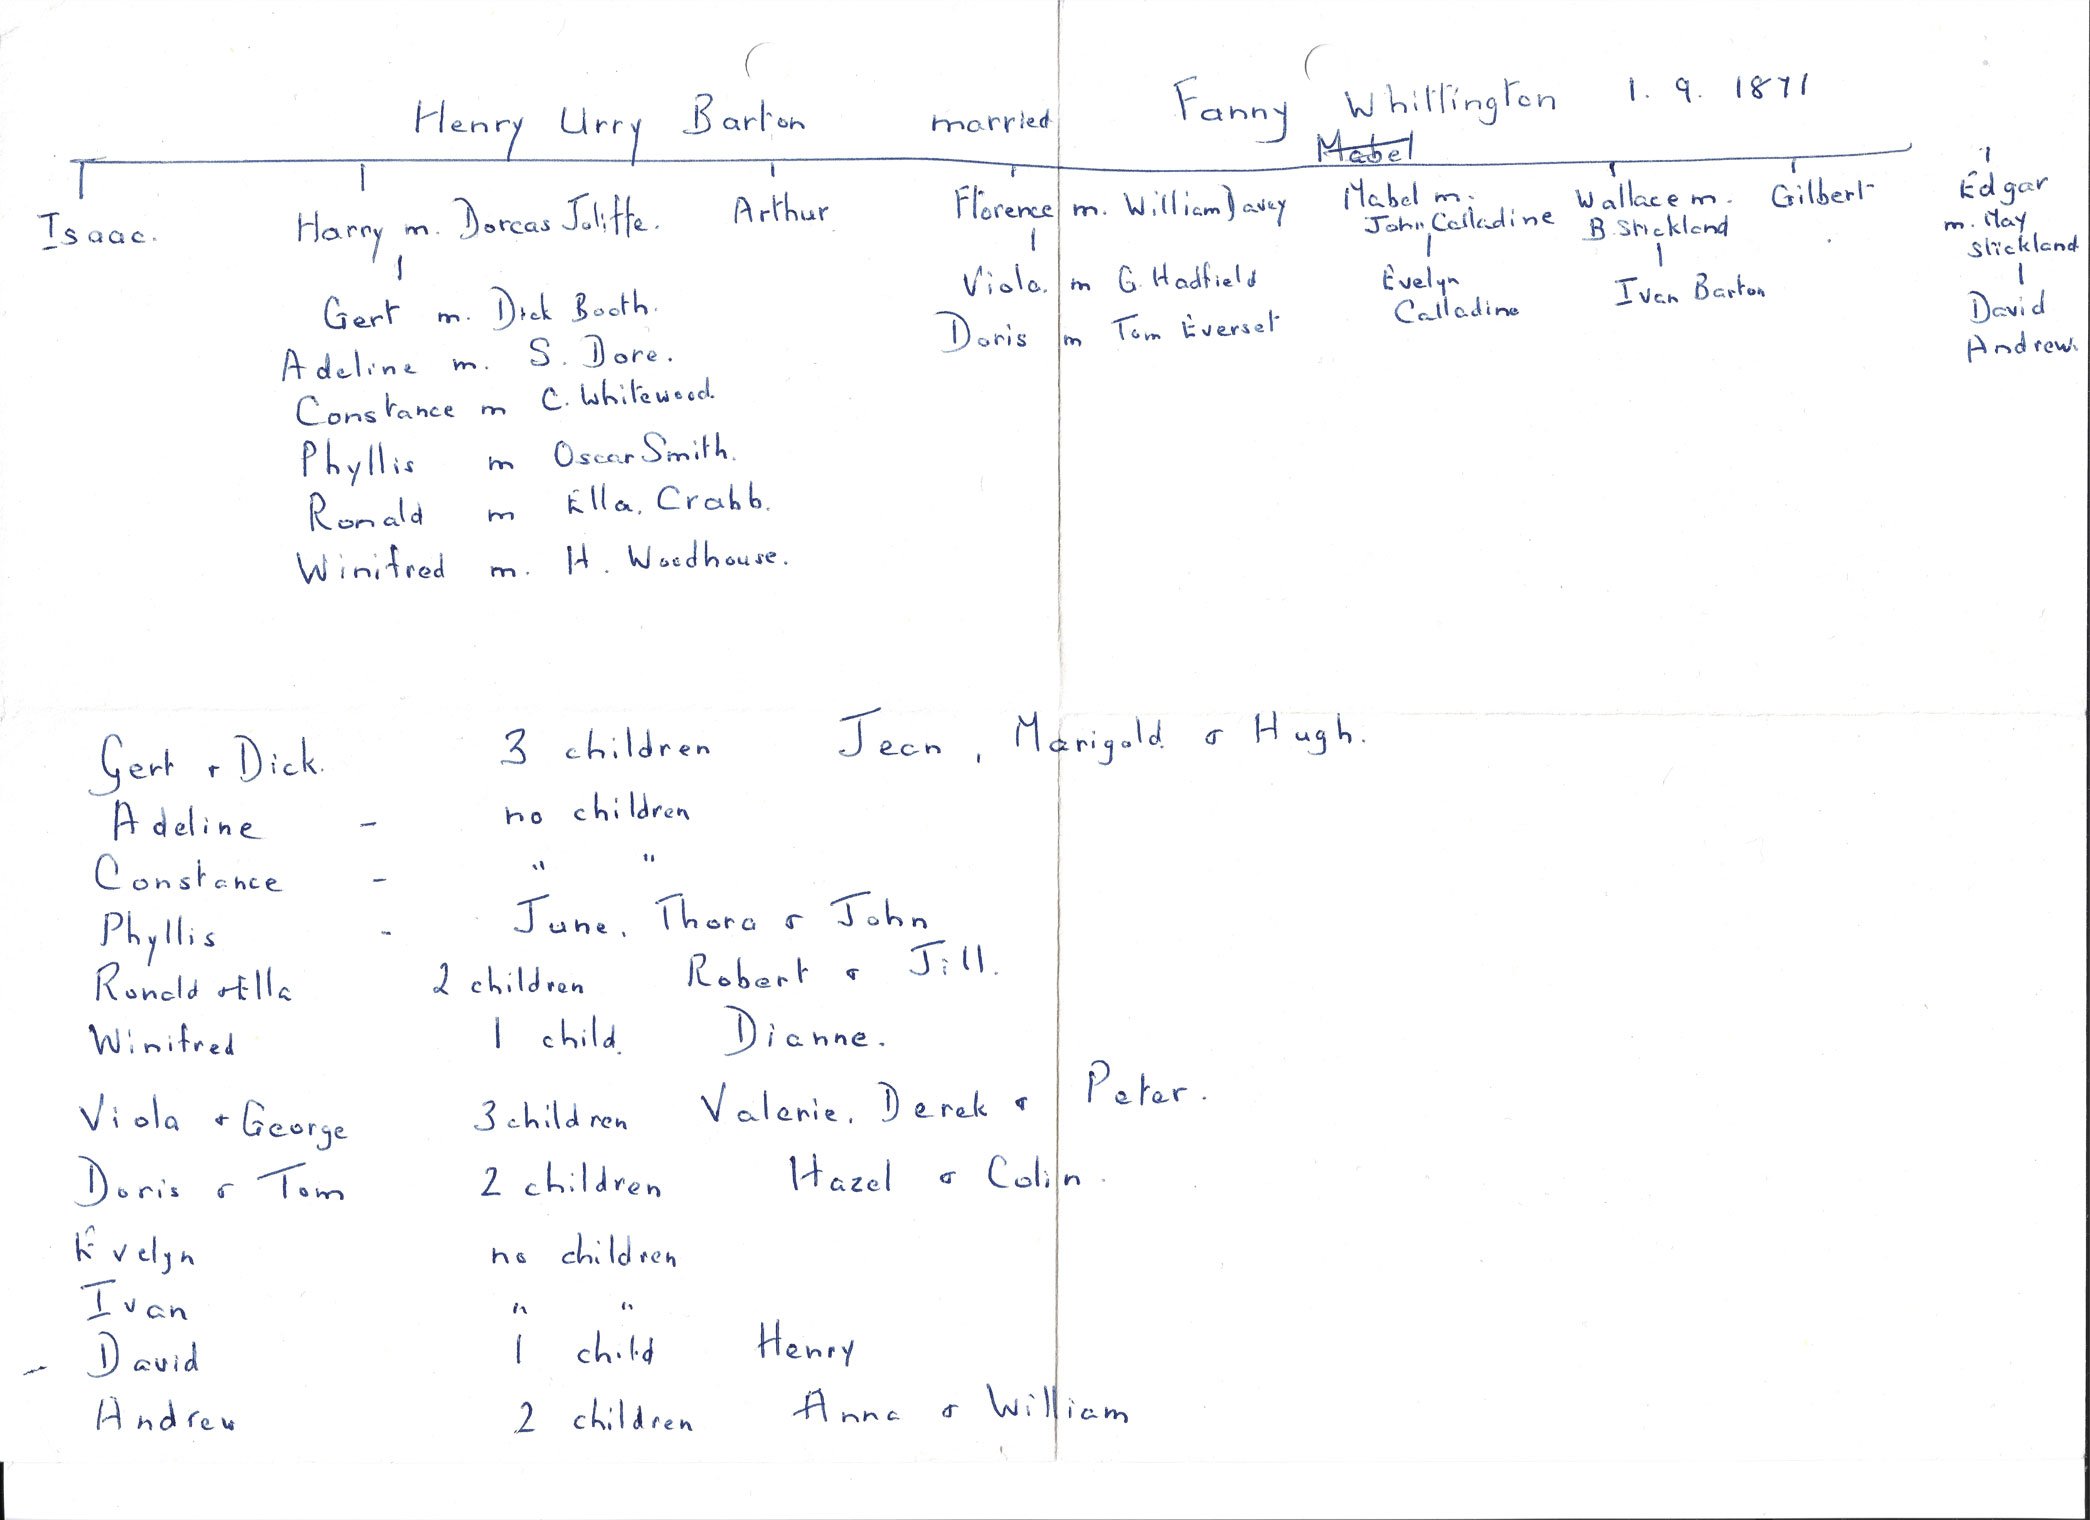 Henry Urry Barton married Fanny Whittington 1. 9. 1871
Mabel
Isaac.
Harry m. Dorcas Joliffe.
Gert m. Dick Booth.
Adeline m. S. Dore.
Constance m C. Whitewood.
Phyllis m Oscar Smith.
Ronald m Ella. Crabb.
Winifred m. H. Woodhouse.
Arthur
Florence m. William Davey
Viola. m G. Hadfield
Doris m Tom Everset
Mabel m.
John Calladine
Evelyn
Calladine
Wallace m.
B. Strickland
Ivan Barton
Gilbert
Edgar
m. May
Stickland
David
Andrew.
Gert + Dick. 3 children Jean, Marigold & Hugh.
Adeline - no children
Constance - " "
Phyllis - June. Thora & John
Ronald & Ella 2 children Robert & Jill.
Winifred 1 child. Dianne.
Viola + George 3 children Valerie. Derek & Peter.
Doris & Tom 2 children Hazel & Colin.
Evelyn no children
Ivan " "
- David 1 child Henry
Andrew 2 children Anna & William